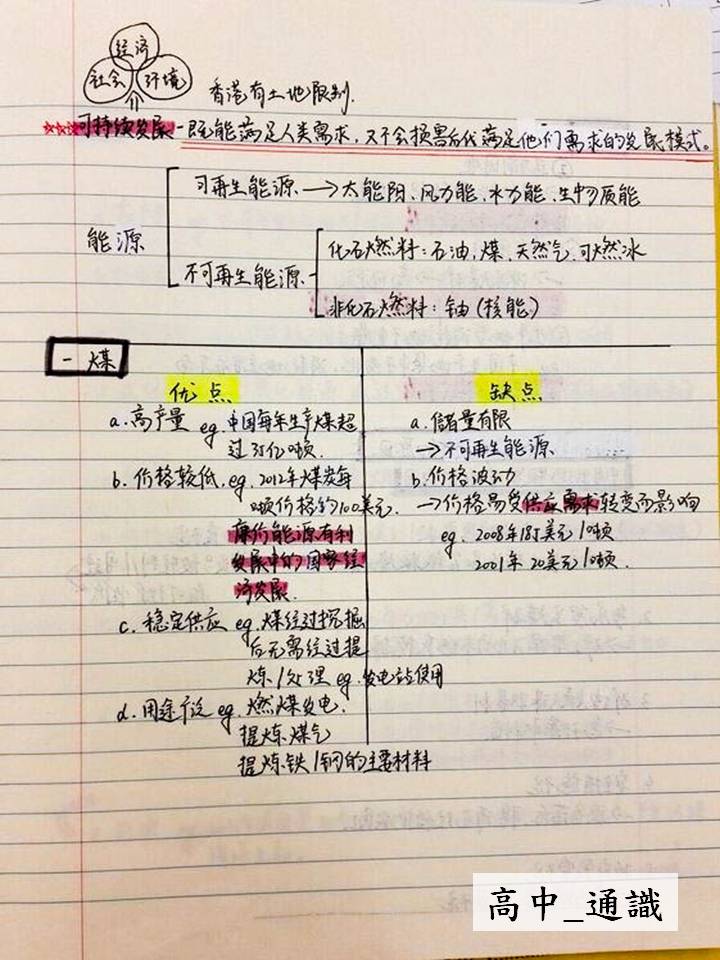 经济
社会 环境
香港有土地限制.
可持续发展 - 既能满足人类需求，又不会损害后代满足他们需求的发展模式。
能源
可再生能源 → 太能阳、风力能、水力能、生物质能
不可再生能源
化石燃料：石油，煤，天然气，可燃冰
非化石燃料：铀(核能)
一 煤
优点
a. 高产量 eg. 中国每年生产煤超
过35亿吨.
b. 价格较低. eg. 2012年煤炭每
吨价格约100美元.
廉价能源有利
发展中的国家经
济发展.
c. 稳定供应 eg. 煤经过挖掘
后无需经过提
炼/处理 eg. 发电站使用
d. 用途广泛 eg. 燃煤发电.
提炼煤气
提炼铁/钢的主要材料
缺点
a. 儲量有限
→ 不可再生能源
b. 价格波动
→ 价格易受供应需求转变而影响
eg. 2008年185美元/吨
2001年 20美元/吨.
高中_通識